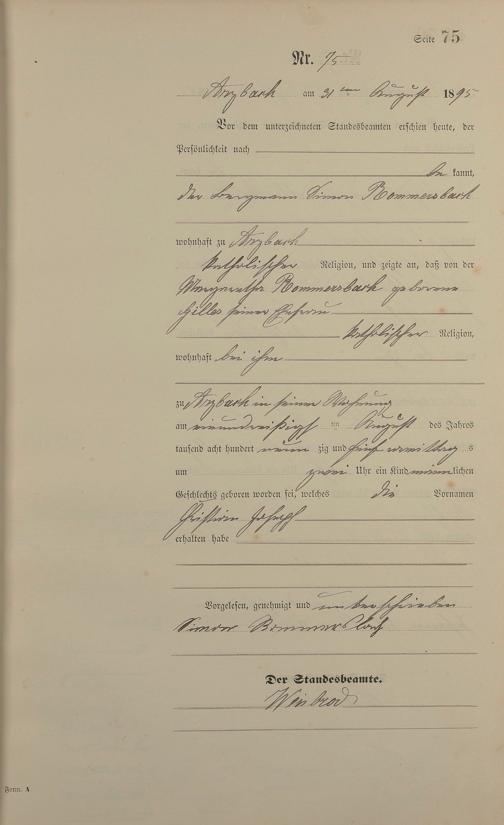 Seite 75
Nr. 75
Arzbach am 31ten August 1895
Vor dem unterzeichneten Standesbeamten erschien heute, der
Persönlichkeit nach
be kannt,
der Bergmann Simon Rommersbach
wohnhaft zu Arzbach
katholischer Religion, und zeigte an, daß von der
Margaretha Rommersbach geborene
Gilles seiner Ehefrau
katholischer Religion,
wohnhaft bei ihm
zu Arzbach in seiner Wohnung
am einunddreißigsten August des Jahres
tausend acht hundert neun zig und fünf vormittags
um zwei Uhr ein Kind männlichen
Geschlechts geboren worden sei, welches die Vornamen
Christian Joseph
erhalten habe
Vorgelesen, genehmigt und unterschrieben
Simon Rommersbach
Der Standesbeamte.
Weisbrod
Form. A